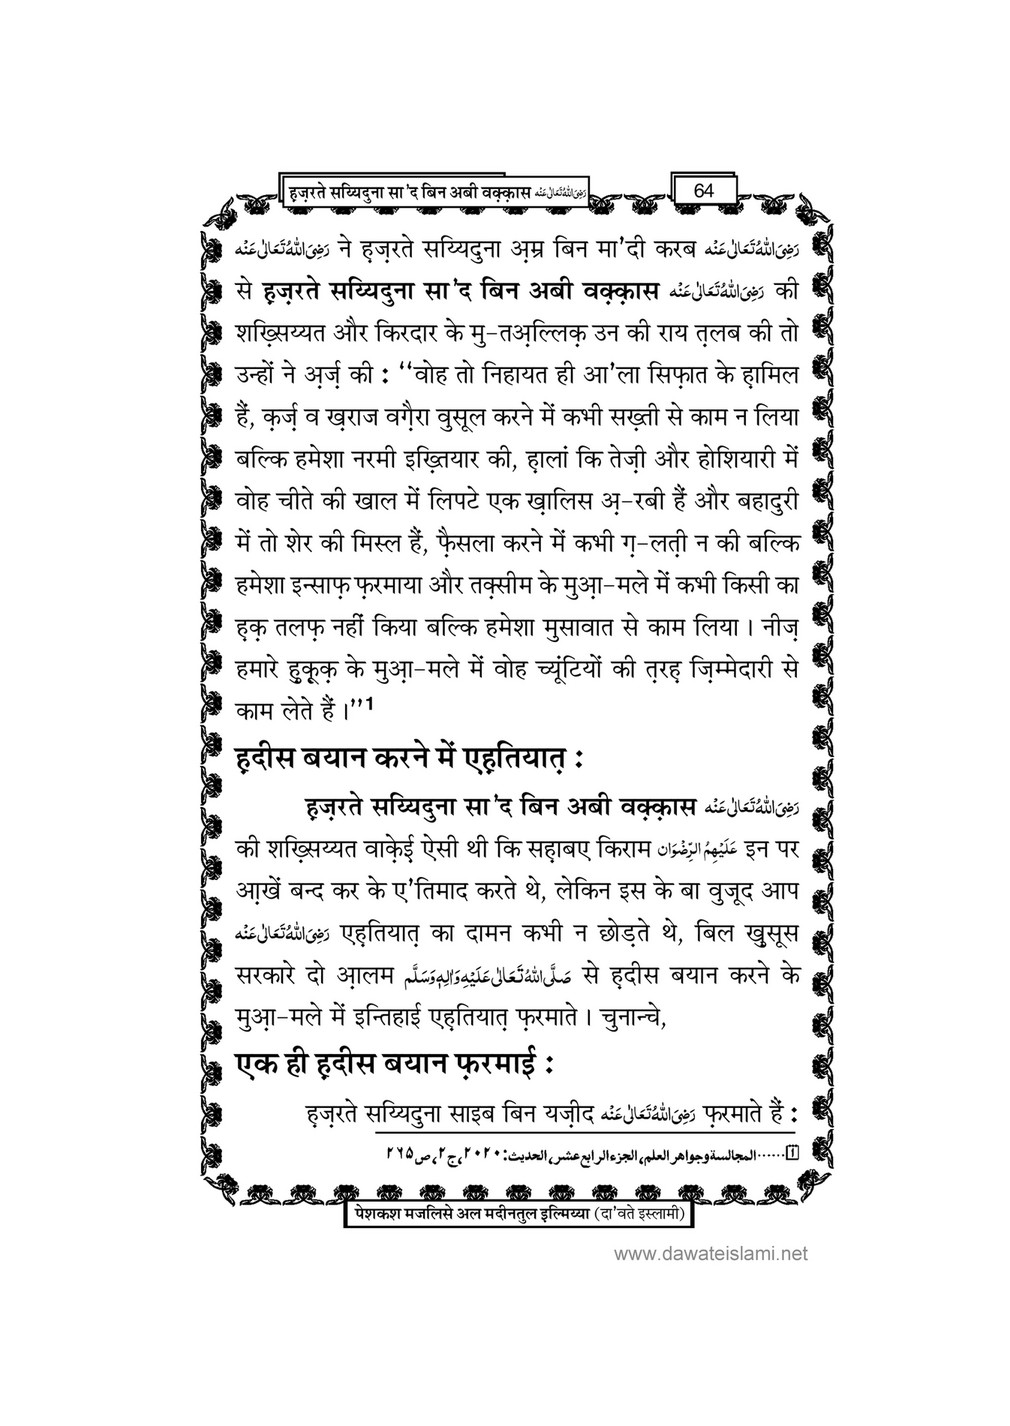 हज़रते सय्यिदुना सा'द बिन अबी वक़्क़ास رَضِیَ اللّٰہُ تَعَالٰی عَنْہ
64
رَضِیَ اللّٰہُ تَعَالٰی عَنْہ ने ह़ज़रते सय्यिदुना अ़म्र बिन मा'दी करब رَضِیَ اللّٰہُ تَعَالٰی عَنْہ
से ह़ज़रते सय्यिदुना सा'द बिन अबी वक़्क़ास رَضِیَ اللّٰہُ تَعَالٰی عَنْہ की
शख़्सिय्यत और किरदार के मु-तअ़ल्लिक़ उन की राय त़लब की तो
उन्हों ने अ़र्ज़ की : “वोह तो निहायत ही आ'ला सिफ़ात के ह़ामिल
हैं, क़र्ज़ व ख़राज वग़ैरा वुसूल करने में कभी सख़्ती से काम न लिया
बल्कि हमेशा नरमी इख़्तियार की, ह़ालां कि तेज़ी और होशियारी में
वोह चीते की खाल में लिपटे एक ख़ालिस अ़-रबी हैं और बहादुरी
में तो शेर की मिस्ल हैं, फ़ैसला करने में कभी ग़-लत़ी न की बल्कि
हमेशा इन्साफ़ फ़रमाया और तक़्सीम के मुआ़-मले में कभी किसी का
ह़क़ तलफ़ नहीं किया बल्कि हमेशा मुसावात से काम लिया । नीज़
हमारे ह़ुक़ूक़ के मुआ़-मले में वोह च्यूंटियों की त़रह़ ज़िम्मेदारी से
काम लेते हैं ।”1
ह़दीस बयान करने में एह़तियात़ :
ह़ज़रते सय्यिदुना सा'द बिन अबी वक़्क़ास رَضِیَ اللّٰہُ تَعَالٰی عَنْہ
की शख़्सिय्यत वाक़ेई ऐसी थी कि सह़ाबए किराम عَلَیْہِمُ الرِّضْوَان इन पर
आखें बन्द कर के ए'तिमाद करते थे, लेकिन इस के बा वुजूद आप
رَضِیَ اللّٰہُ تَعَالٰی عَنْہ एह़तियात़ का दामन कभी न छोड़ते थे, बिल ख़ुसूस
सरकारे दो आ़लम صَلَّی اللّٰہُ تَعَالٰی عَلَیْہِ وَاٰلِہٖ وَسَلَّم से ह़दीस बयान करने के
मुआ़-मले में इन्तिहाई एह़तियात़ फ़रमाते । चुनान्चे,
एक ही ह़दीस बयान फ़रमाई :
ह़ज़रते सय्यिदुना साइब बिन यज़ीद رَضِیَ اللّٰہُ تَعَالٰی عَنْہ फ़रमाते हैं :
[1]......المجالسة وجواهر العلم، الجزء الرابع عشر، الحدیث: ۲۰۲۰، ج۲، ص۲۶۵
पेशकश मजलिसे अल मदीनतुल इल्मिय्या (दा'वते इस्लामी)
www.dawateislami.net